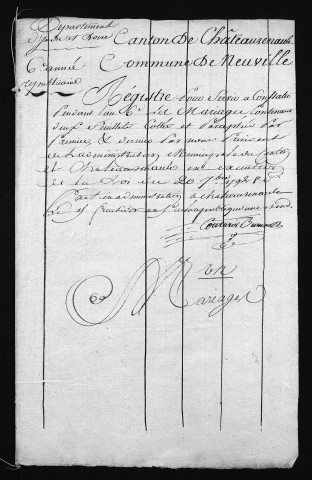 Département
d'Indre et Loire
Canton De Châteaurenault
6e année
Commune De Neuville
républicaine
Régistre Pour Servir a Constater
Pendant l'an 6e les Mariages contenant
feuillets Cottés et Paraphés Par
Premier & dernier Par nous Président
de l'administration Municipale du Canton
de Chateaurenault en execution
de la Loi du 20 7bre 1792
fait en administration a chateaurenault
Le
Mariages